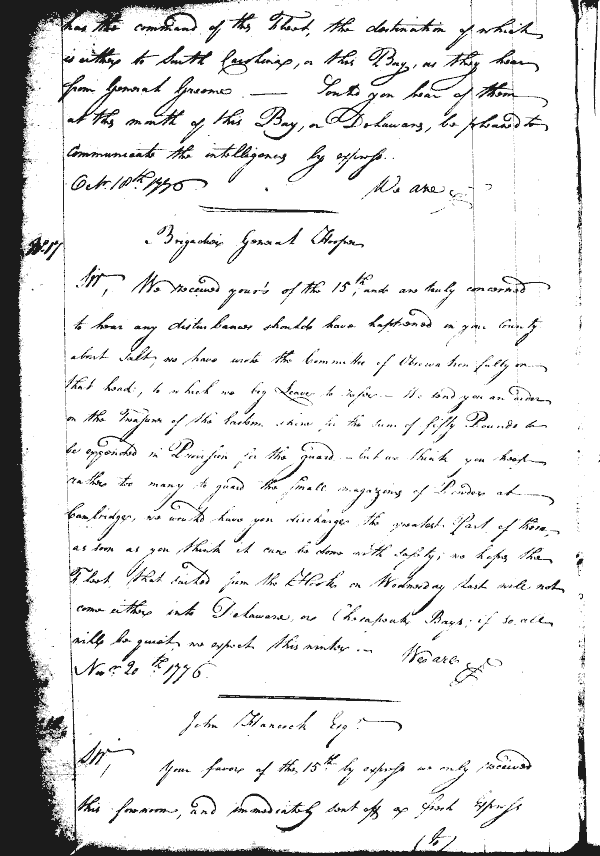 has the command of this Fleet, the destination of which
is either to South Carolina, or this Bay, as they hear
from General Greene. — Should you hear of them
at the mouth of this Bay, or Delaware, be pleased to
communicate the intelligence by express.
18th 1776 We are &c
No. 17
Brigadier General Hooper
Sir, We received your's of the 15th, and are truly concerned
to hear any disturbances should have happened in your County
about Salt, we have wrote the Committee of Observation fully on
that head, to which we beg Leave to refer — We send you an order
on the Treasurer of the Eastern Shore for the sum of fifty Pounds to
be expended in Provision for the guard — but we think you keep
rather too many to guard the small magazine of Powder at
Cambridge, we would have you discharge the greatest Part of them
as soon as you think it can be done with safety; we hope the
Fleet that sailed from the Hook on Wednesday last will not
come either into Delaware or Chesapeak Bays; if so all
will be quiet we expect this winter — We are &c
Novr. 20th 1776.
John Hancock Esqr.
Sir, Your favor of the 15th by express we only received
this forenoon, and immediately sent off a fresh Express
(to)